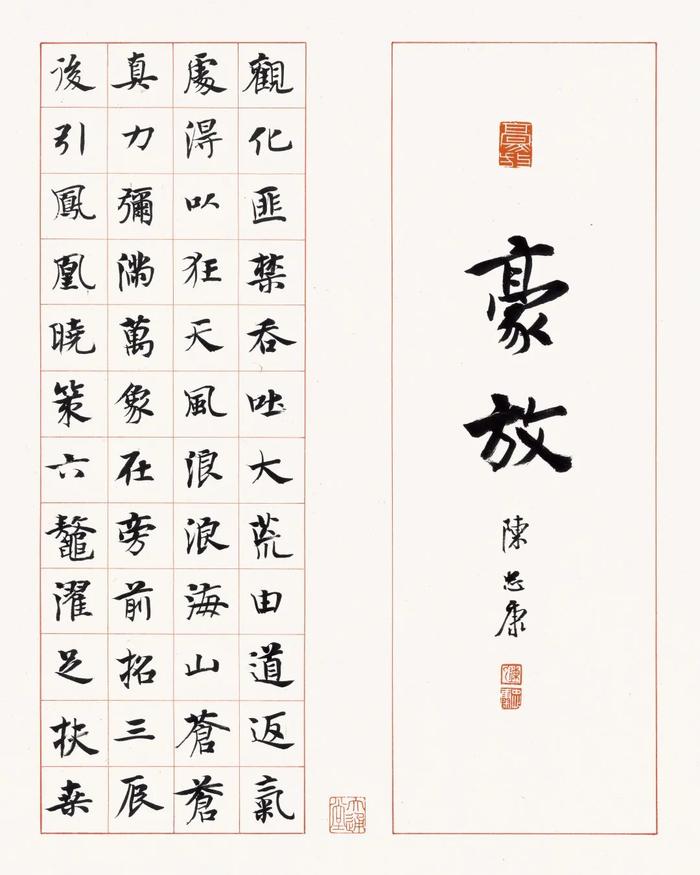 豪放
陳忠康
觀化匪禁吞吐大荒由道返氣
處得以狂天風浪浪海山蒼蒼
真力彌滿萬象在旁前招三辰
後引鳳凰曉策六鼇濯足扶桑